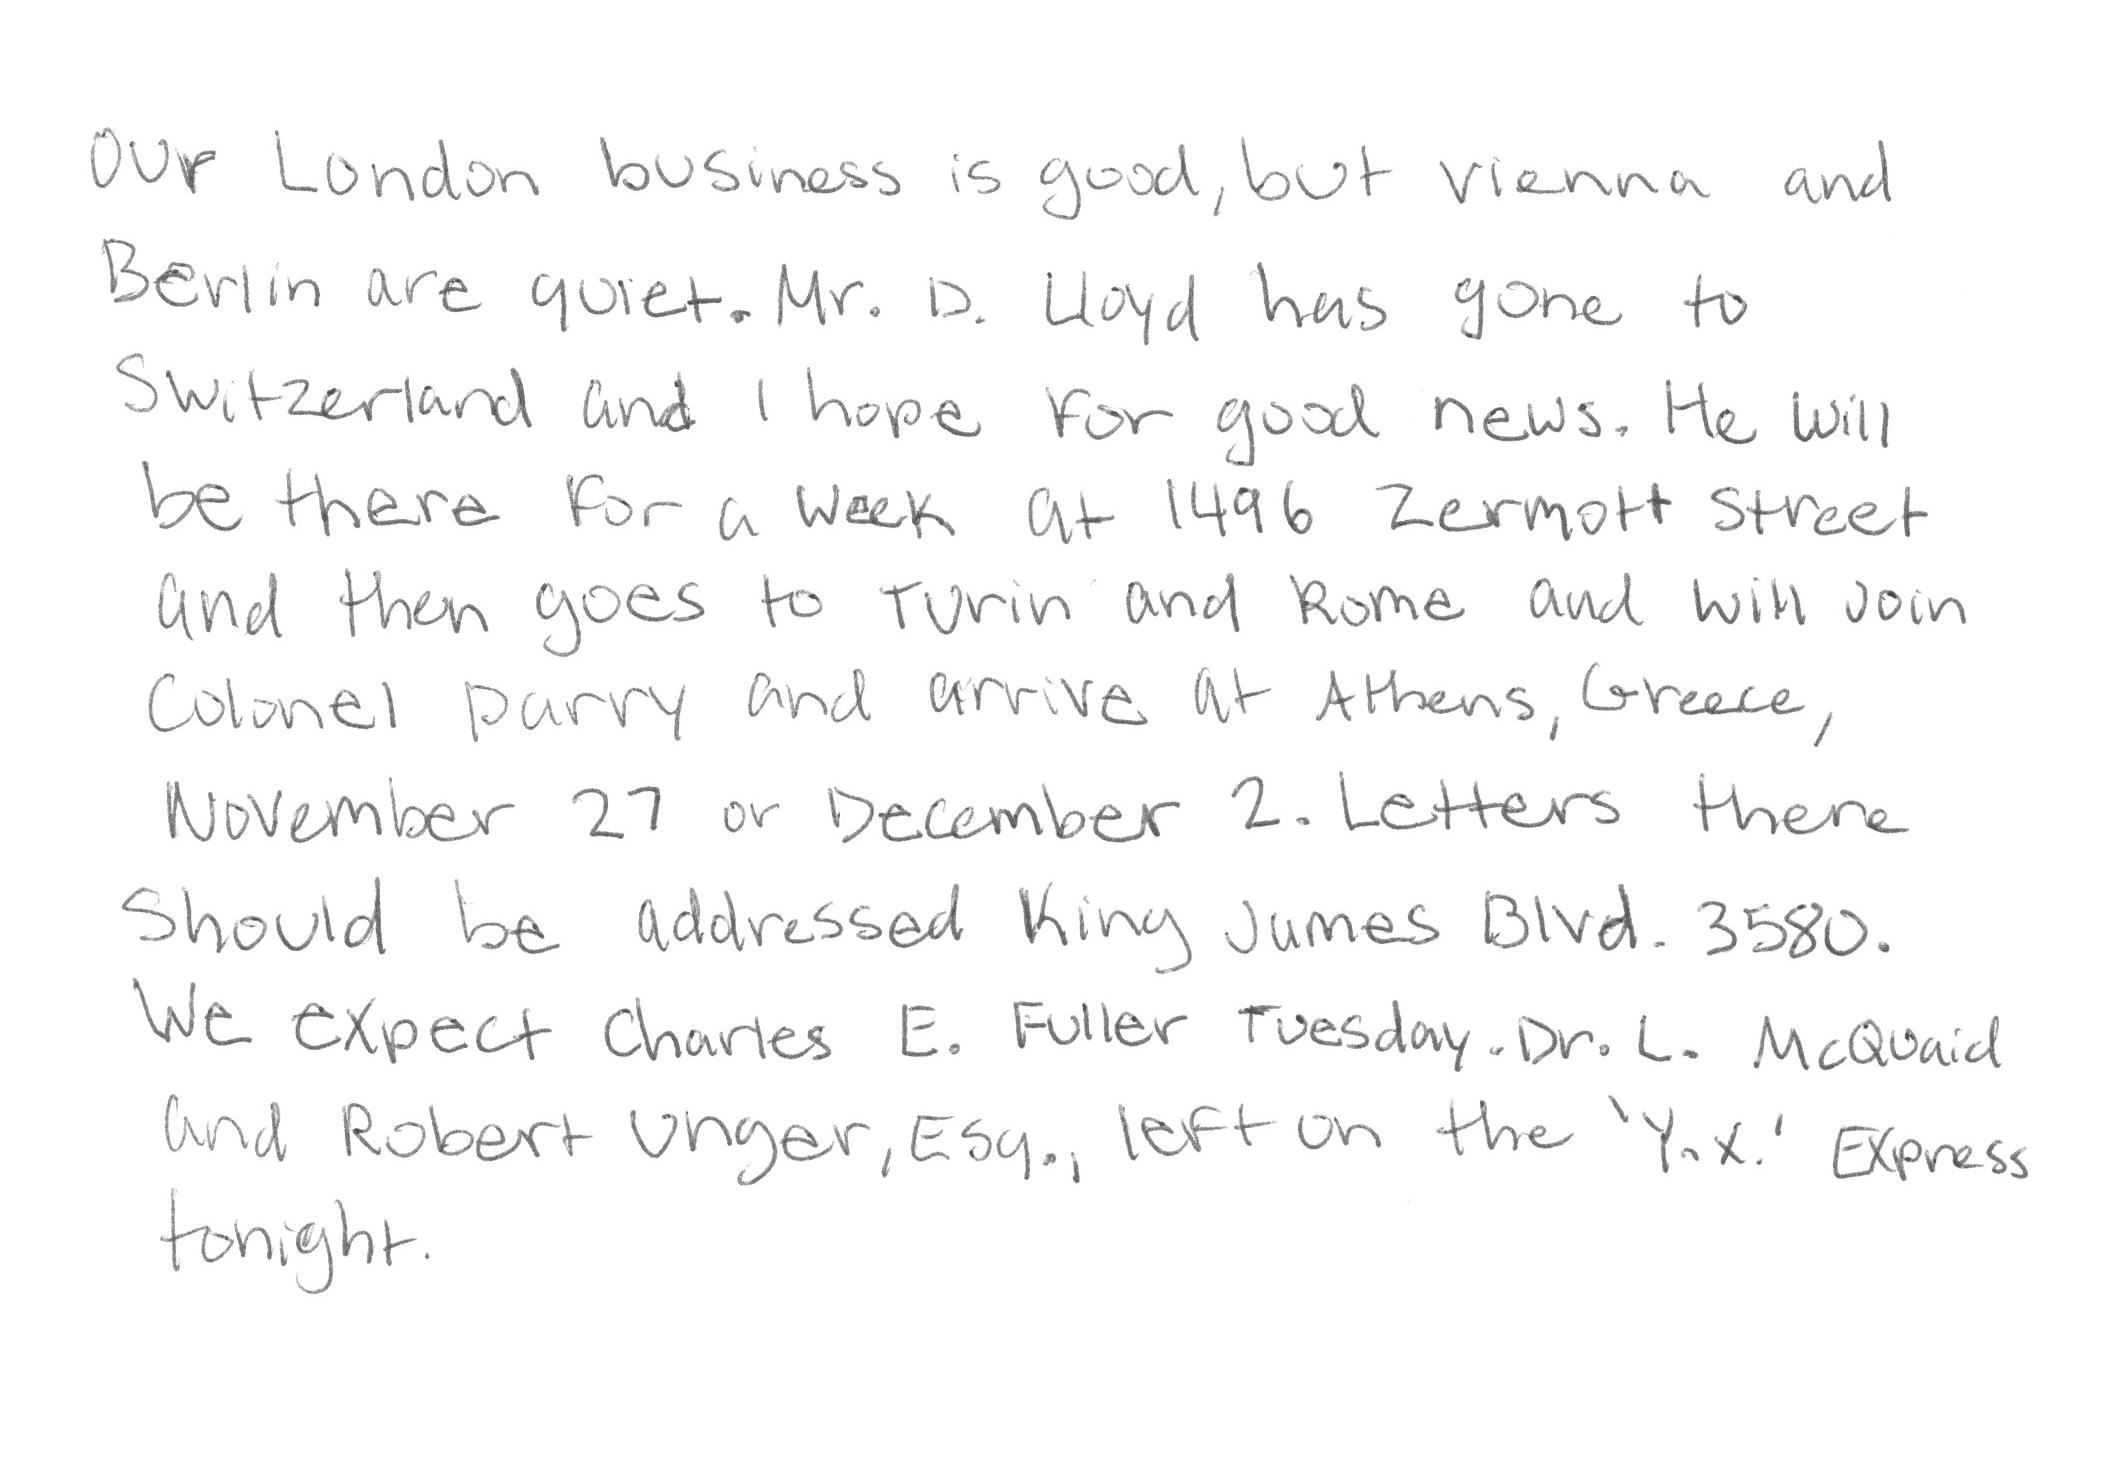 Our London business is good, but Vienna and
Berlin are quiet. Mr. D. Lloyd has gone to
Switzerland and I hope for good news. He will
be there for a week at 1496 Zermott Street
and then goes to Turin and Rome and will join
Colonel Parry and arrive at Athens, Greece,
November 27 or December 2. Letters there
Should be addressed King James Blvd. 3580.
We expect Charles E. Fuller Tuesday. Dr. L. McQuaid
and Robert Unger, Esq., left on the 'Y.X.' Express
tonight.